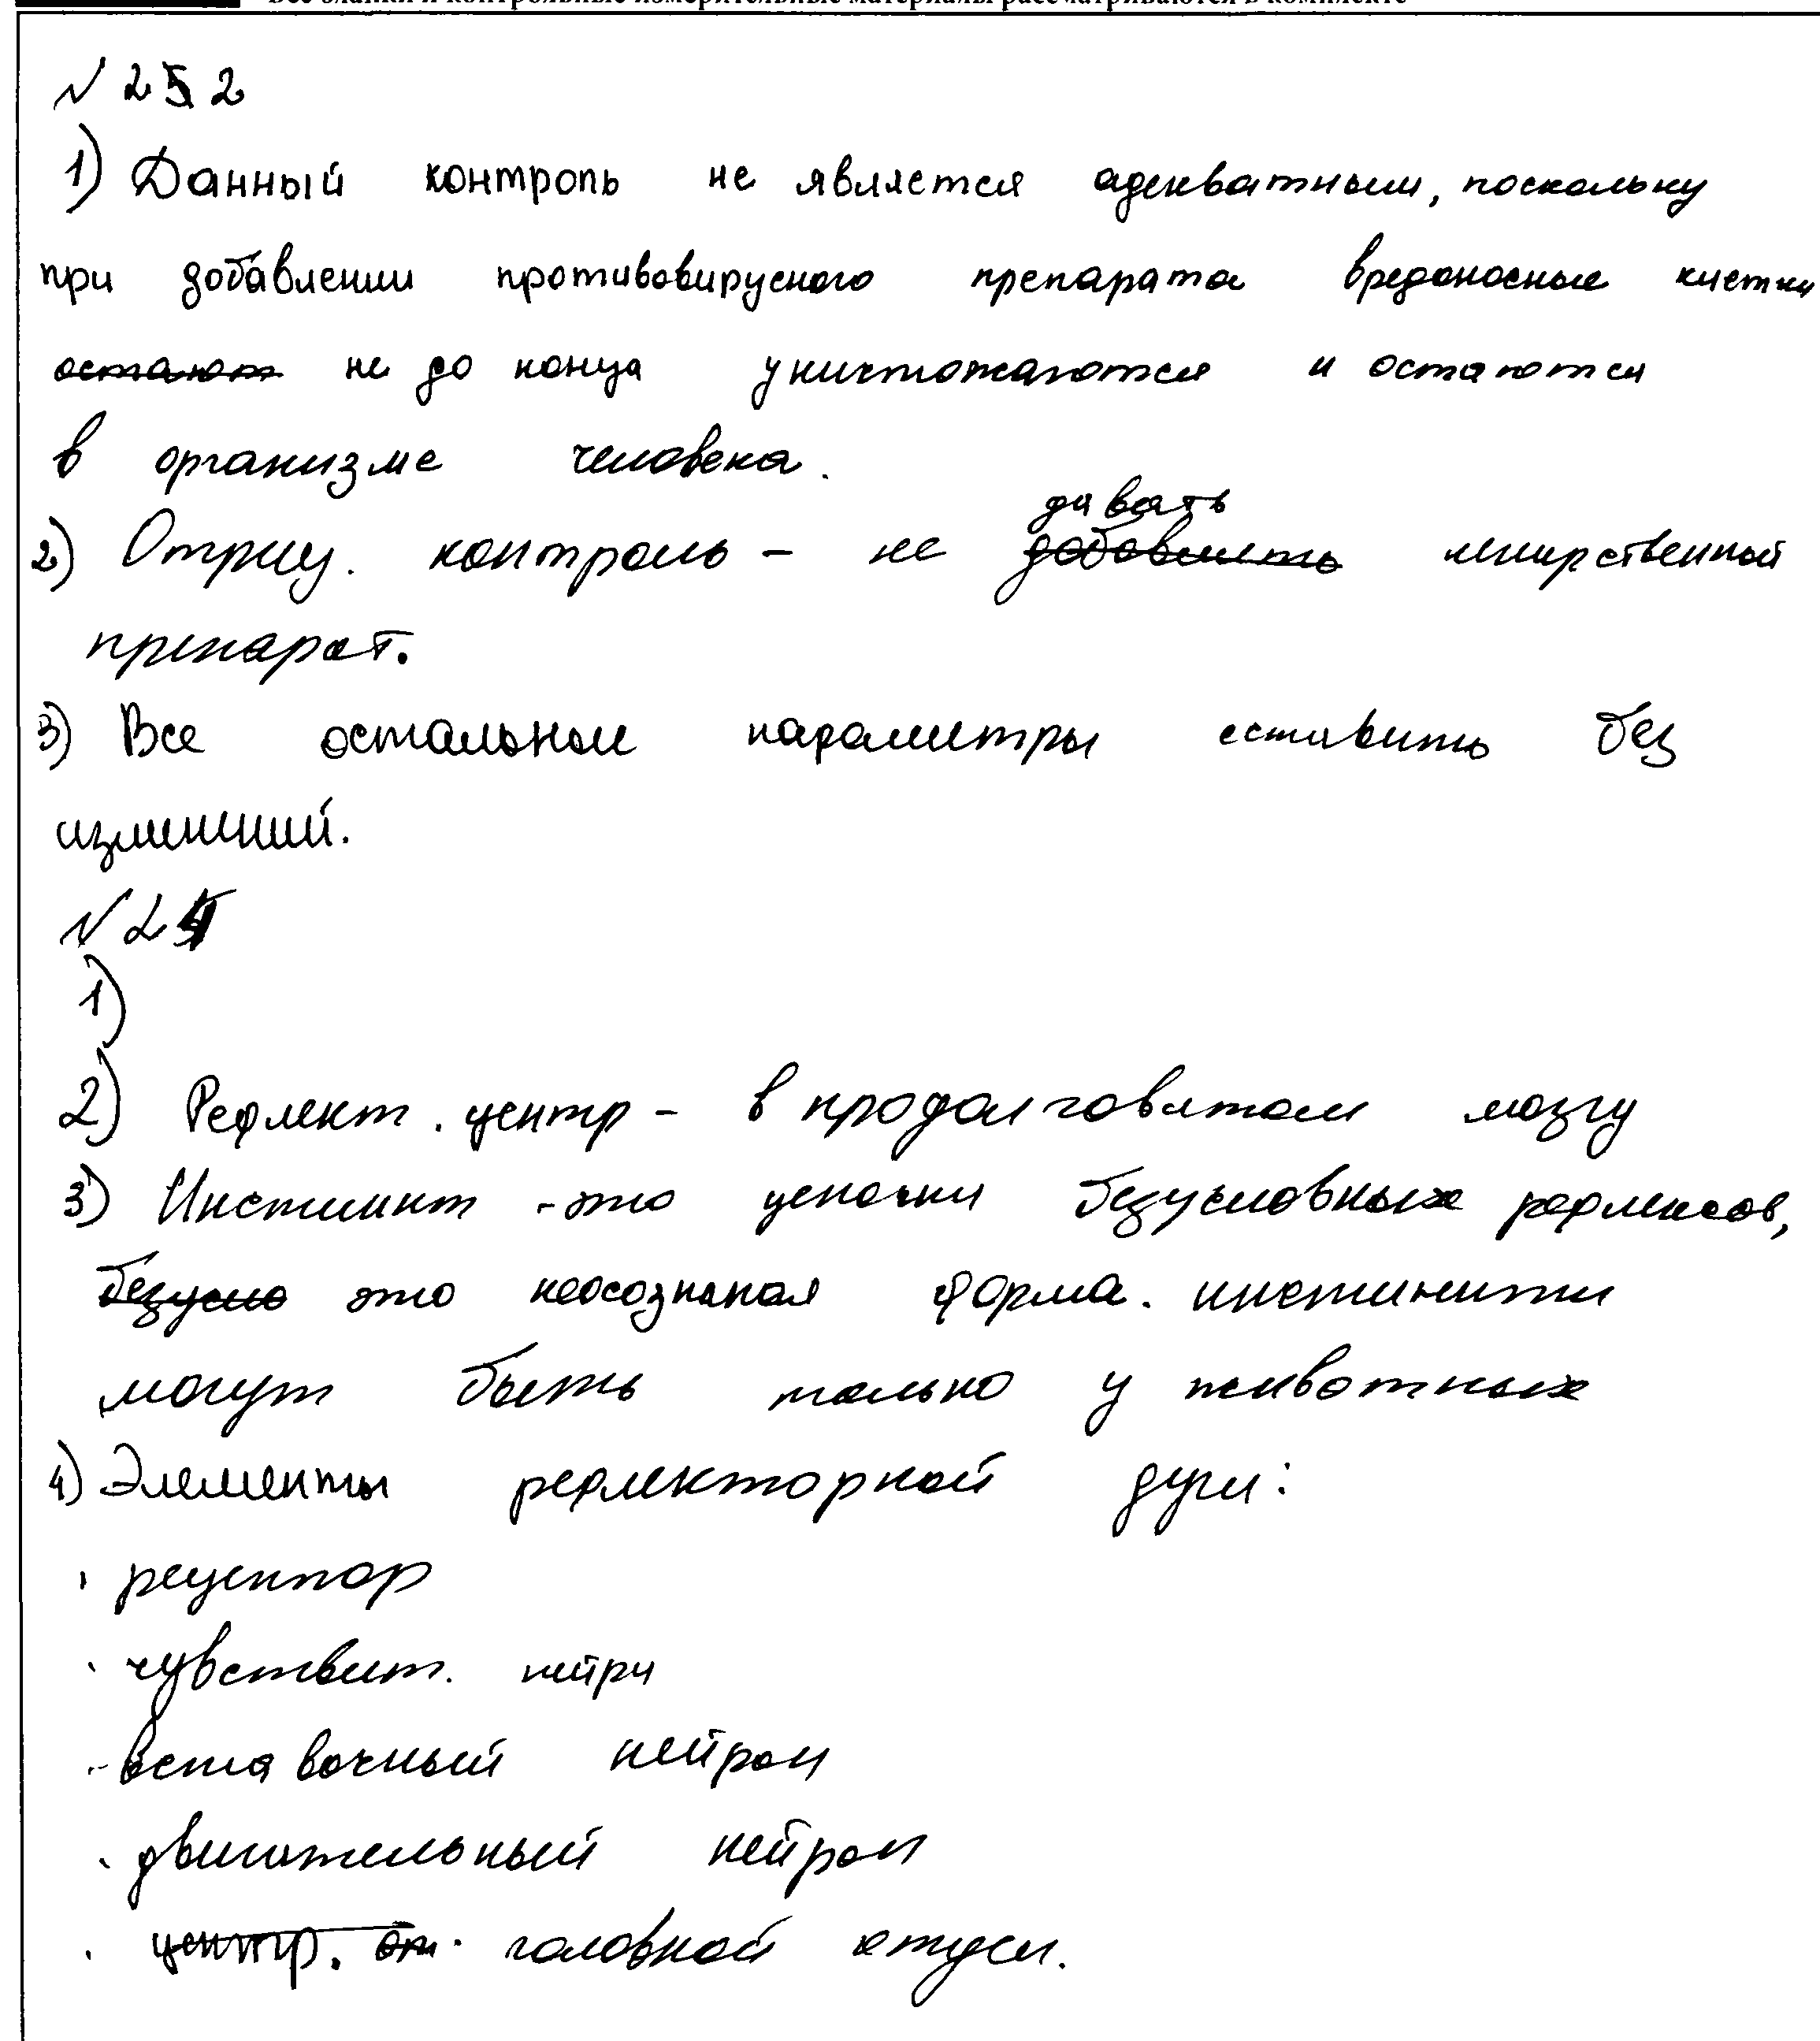 Все бланки и контрольные измерительные материалы рассматриваются в комплекте
№ 2 2
1) Данный контроль не является адекватным, поскольку
при добавлении противовирусного препарата вредоносные клетки
остают не до конца уничтожаются и остаются
в организме человека.
давать
2) Отриц. контроль - не добавлять лекарственный
препарат.
3) Все остальные параметры оставить без
изменений.
№ 24
1)
2) Рефлект. центр - в продолговатом мозгу
3) Инстинкт - это цепочки безусловных рефлексов,
безусло это неосознаная форма. инстинкты
могут быть только у животных
4) Элементы рефлекторной дуги:
· рецептор
· чувствит. нейрн
- вставочный нейрон
· двигательный нейрон
· центр. от. головной отдел.